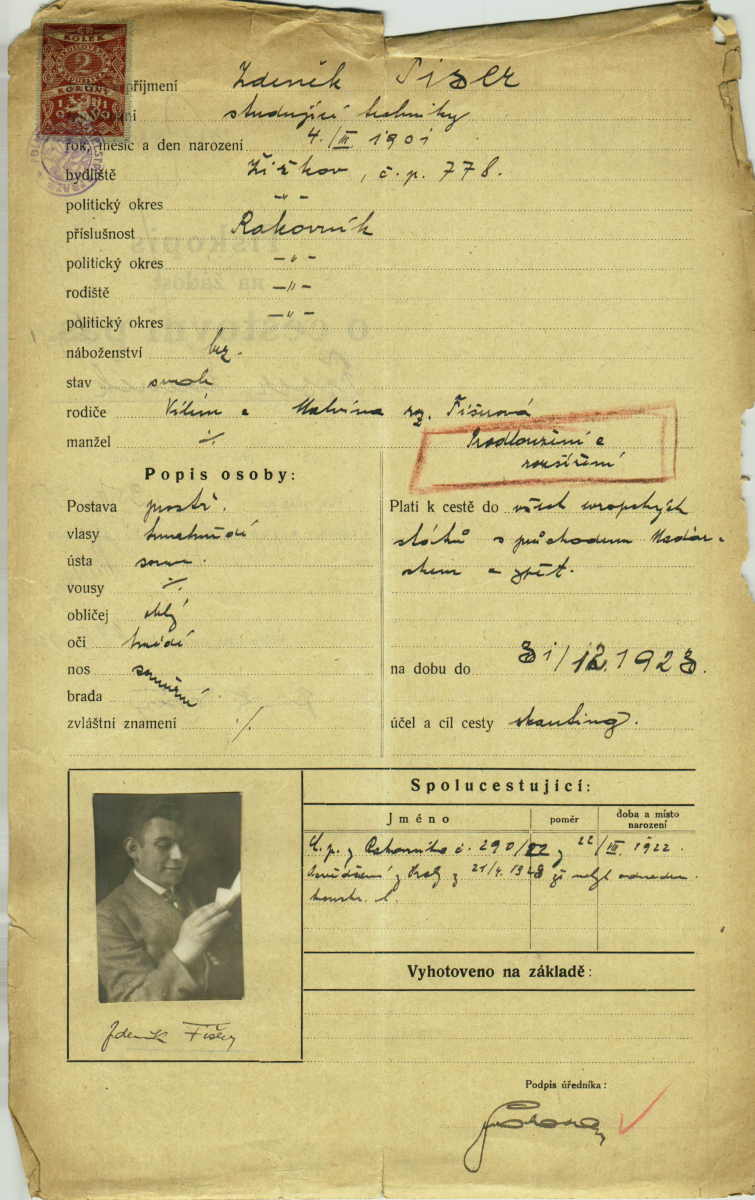 KOLEK
2
KORUN
1919
příjmení Zdeněk Fišer
studující techniky
rok, měsíc a den narození 4./III 1901
bydliště Žižkov, č. p. 778.
politický okres -"-
příslušnost Rakovník
politický okres -"-
rodiště -"-
politický okres -"-
náboženství bez.
stav svob
rodiče Vilém a Malvína roz. Fišerová
manžel ./.
Prodloužení a
rozšíření
Popis osoby:
Postava prostř.
vlasy tmavohnědé
ústa soum.
vousy ./.
obličej oblý
oči hnědé
nos souměrný
brada
zvláštní znamení ./.
Platí k cestě do všech evropských
států s průchodem Maďar-
skem a zpět.
na dobu do 31/12.1923.
účel a cíl cesty skauting.
Spolucestující:
Jméno
poměr
doba a místo narození
C. p. z Rakovníka č. 290/22 z 22/VII. 1922.
z 21/4. 1923 že nebyl
Vyhotoveno na základě:
Zdeněk Fišer
Podpis úředníka: